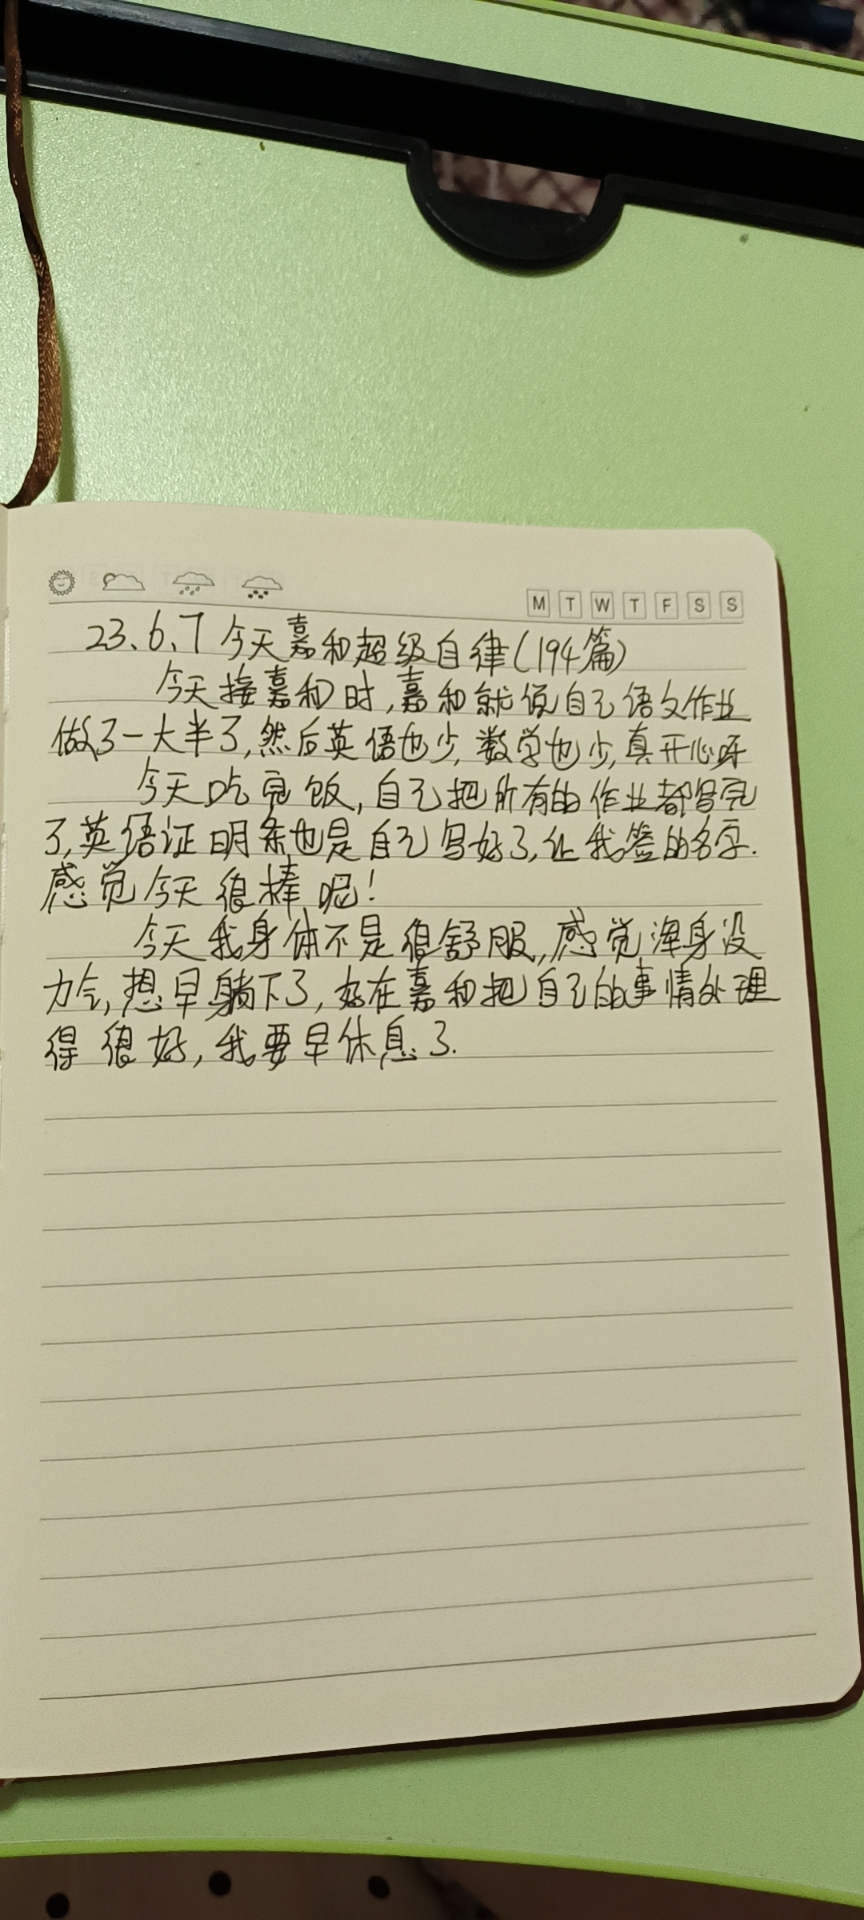 M T W T F S S
23.6.7 今天嘉和超级自律(194篇)
今天接嘉和时,嘉和就说自己语文作业
做了一大半了,然后英语也少,数学也少,真开心呀
今天吃完饭,自己把所有的作业都写完
了,英语证明条也是自己写好了,让我签的名字.
感觉今天很棒呢!
今天我身体不是很舒服,感觉浑身没
力气,想早躺下了,好在嘉和把自己的事情处理
得很好,我要早休息了.